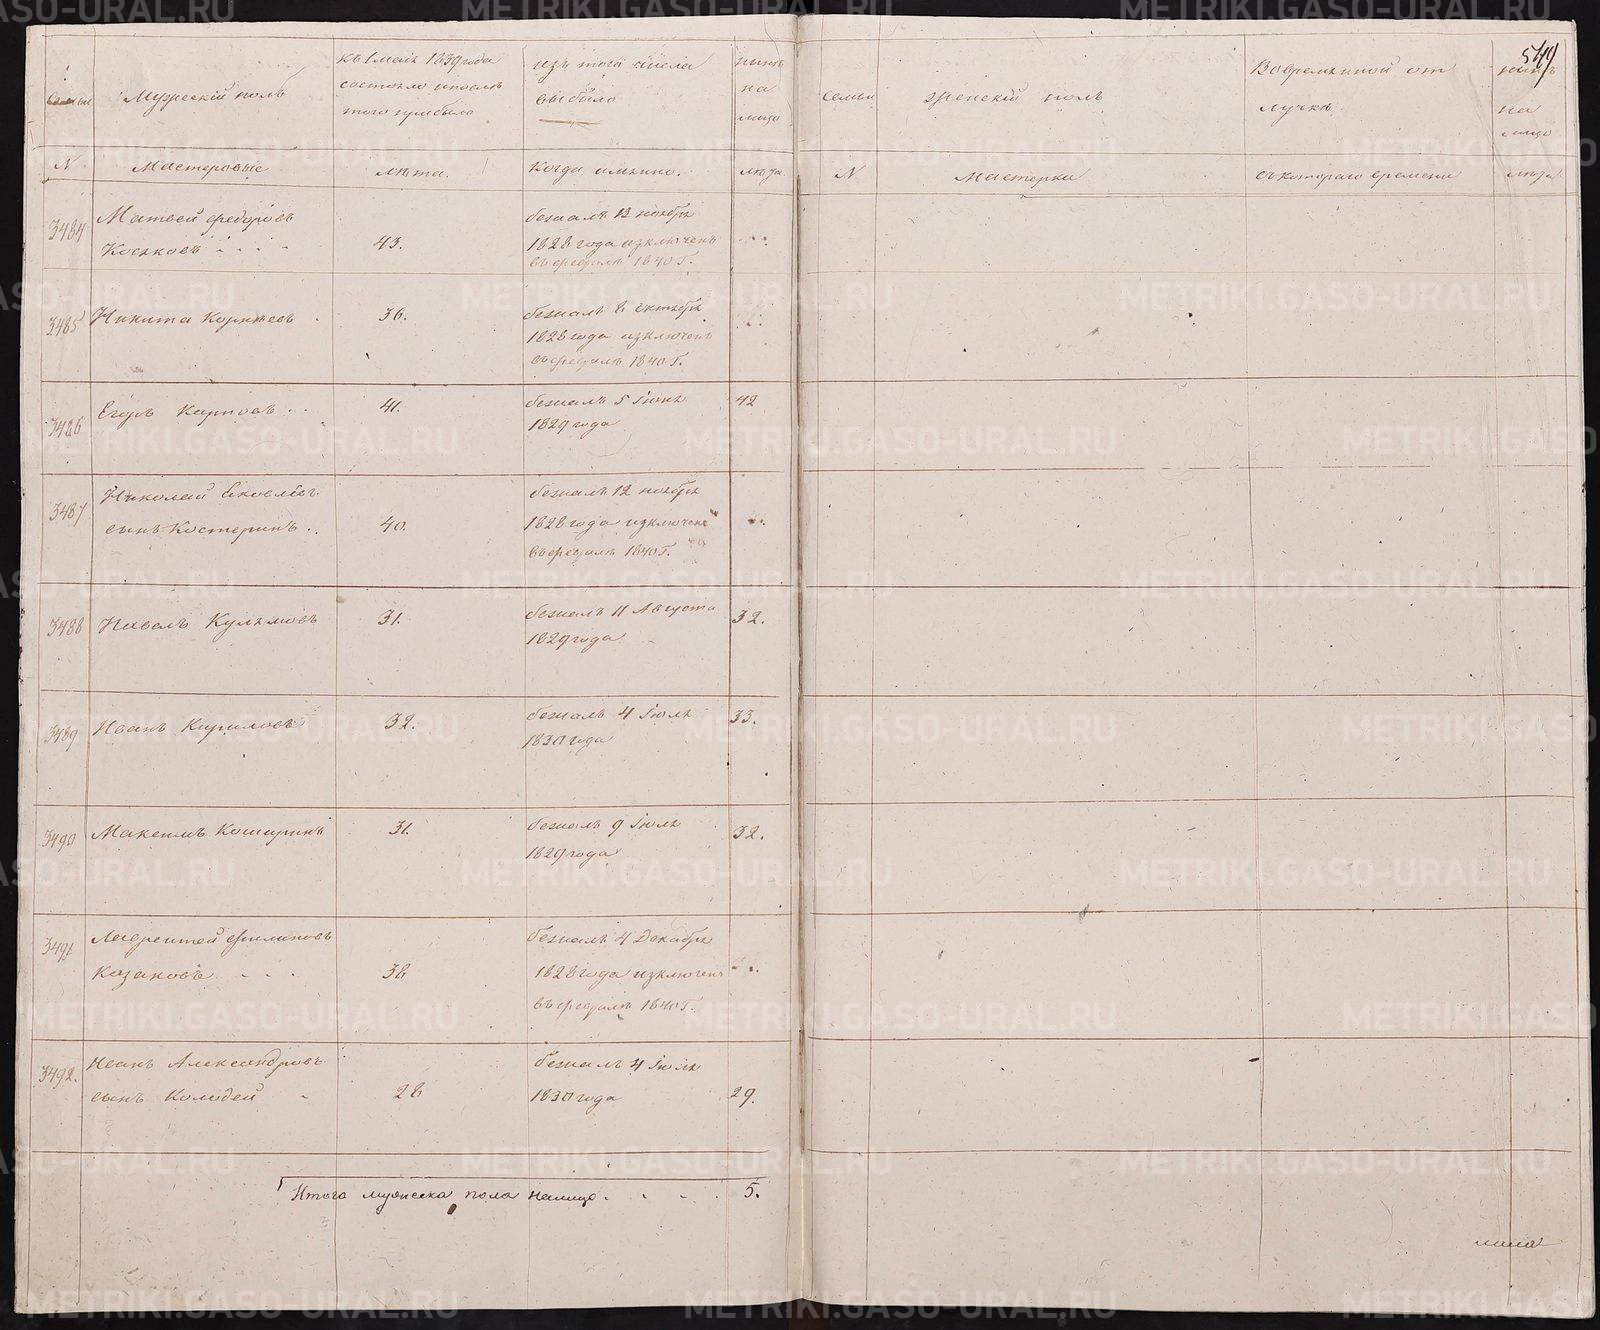 544
семьи
Мужескій полъ
къ 1 маія 1839 года
состояло и послѣ
того прибыло
изъ того числа
выбыло
нынѣ
на
лицо
семьи
женскій полъ
Во временной от
лучкѣ
нынѣ
на
лицо
N
Мастеровые
лѣта.
Когда имянно.
лѣта
N
Мастерки
съ котораго времени
лѣта
3484
Матвей Федоровъ
Косяковъ
43.
бежалъ 13 ноября
1828 года изключенъ
въ февралѣ 1840 г.
3485
Никита Корнѣевъ
36.
бежалъ 8 октября
1828 года изключенъ
въ февралѣ 1840 г.
3486
Егоръ Карповъ
41.
бежалъ 5 Іюня
1829 года
42
3487
Николай Яковлевъ
сынъ Костеринъ
40.
бежалъ 12 ноября
1828 года изключенъ
въ февралѣ 1840 г.
3488
Павелъ Кульмовъ
31.
бежалъ 11 Августа
1829 года
32.
3489
Иванъ Кириловъ
32.
бежалъ 4 Іюля
1830 года
33.
3490
Максимъ Кошуринъ
31.
бежалъ 9 Іюля
1829 года
32.
3491
Лаврентей Филиповъ
Казаковъ
38
бежалъ 4 Декабря
1828 года изключенъ
въ февралѣ 1840 г.
3492.
Иванъ Александровъ
сынъ Колодей
28
бежалъ 4 Іюля
1830 года
29.
Итого мужеска пола налицо
5.
METRIKI.GASO-URAL.RU